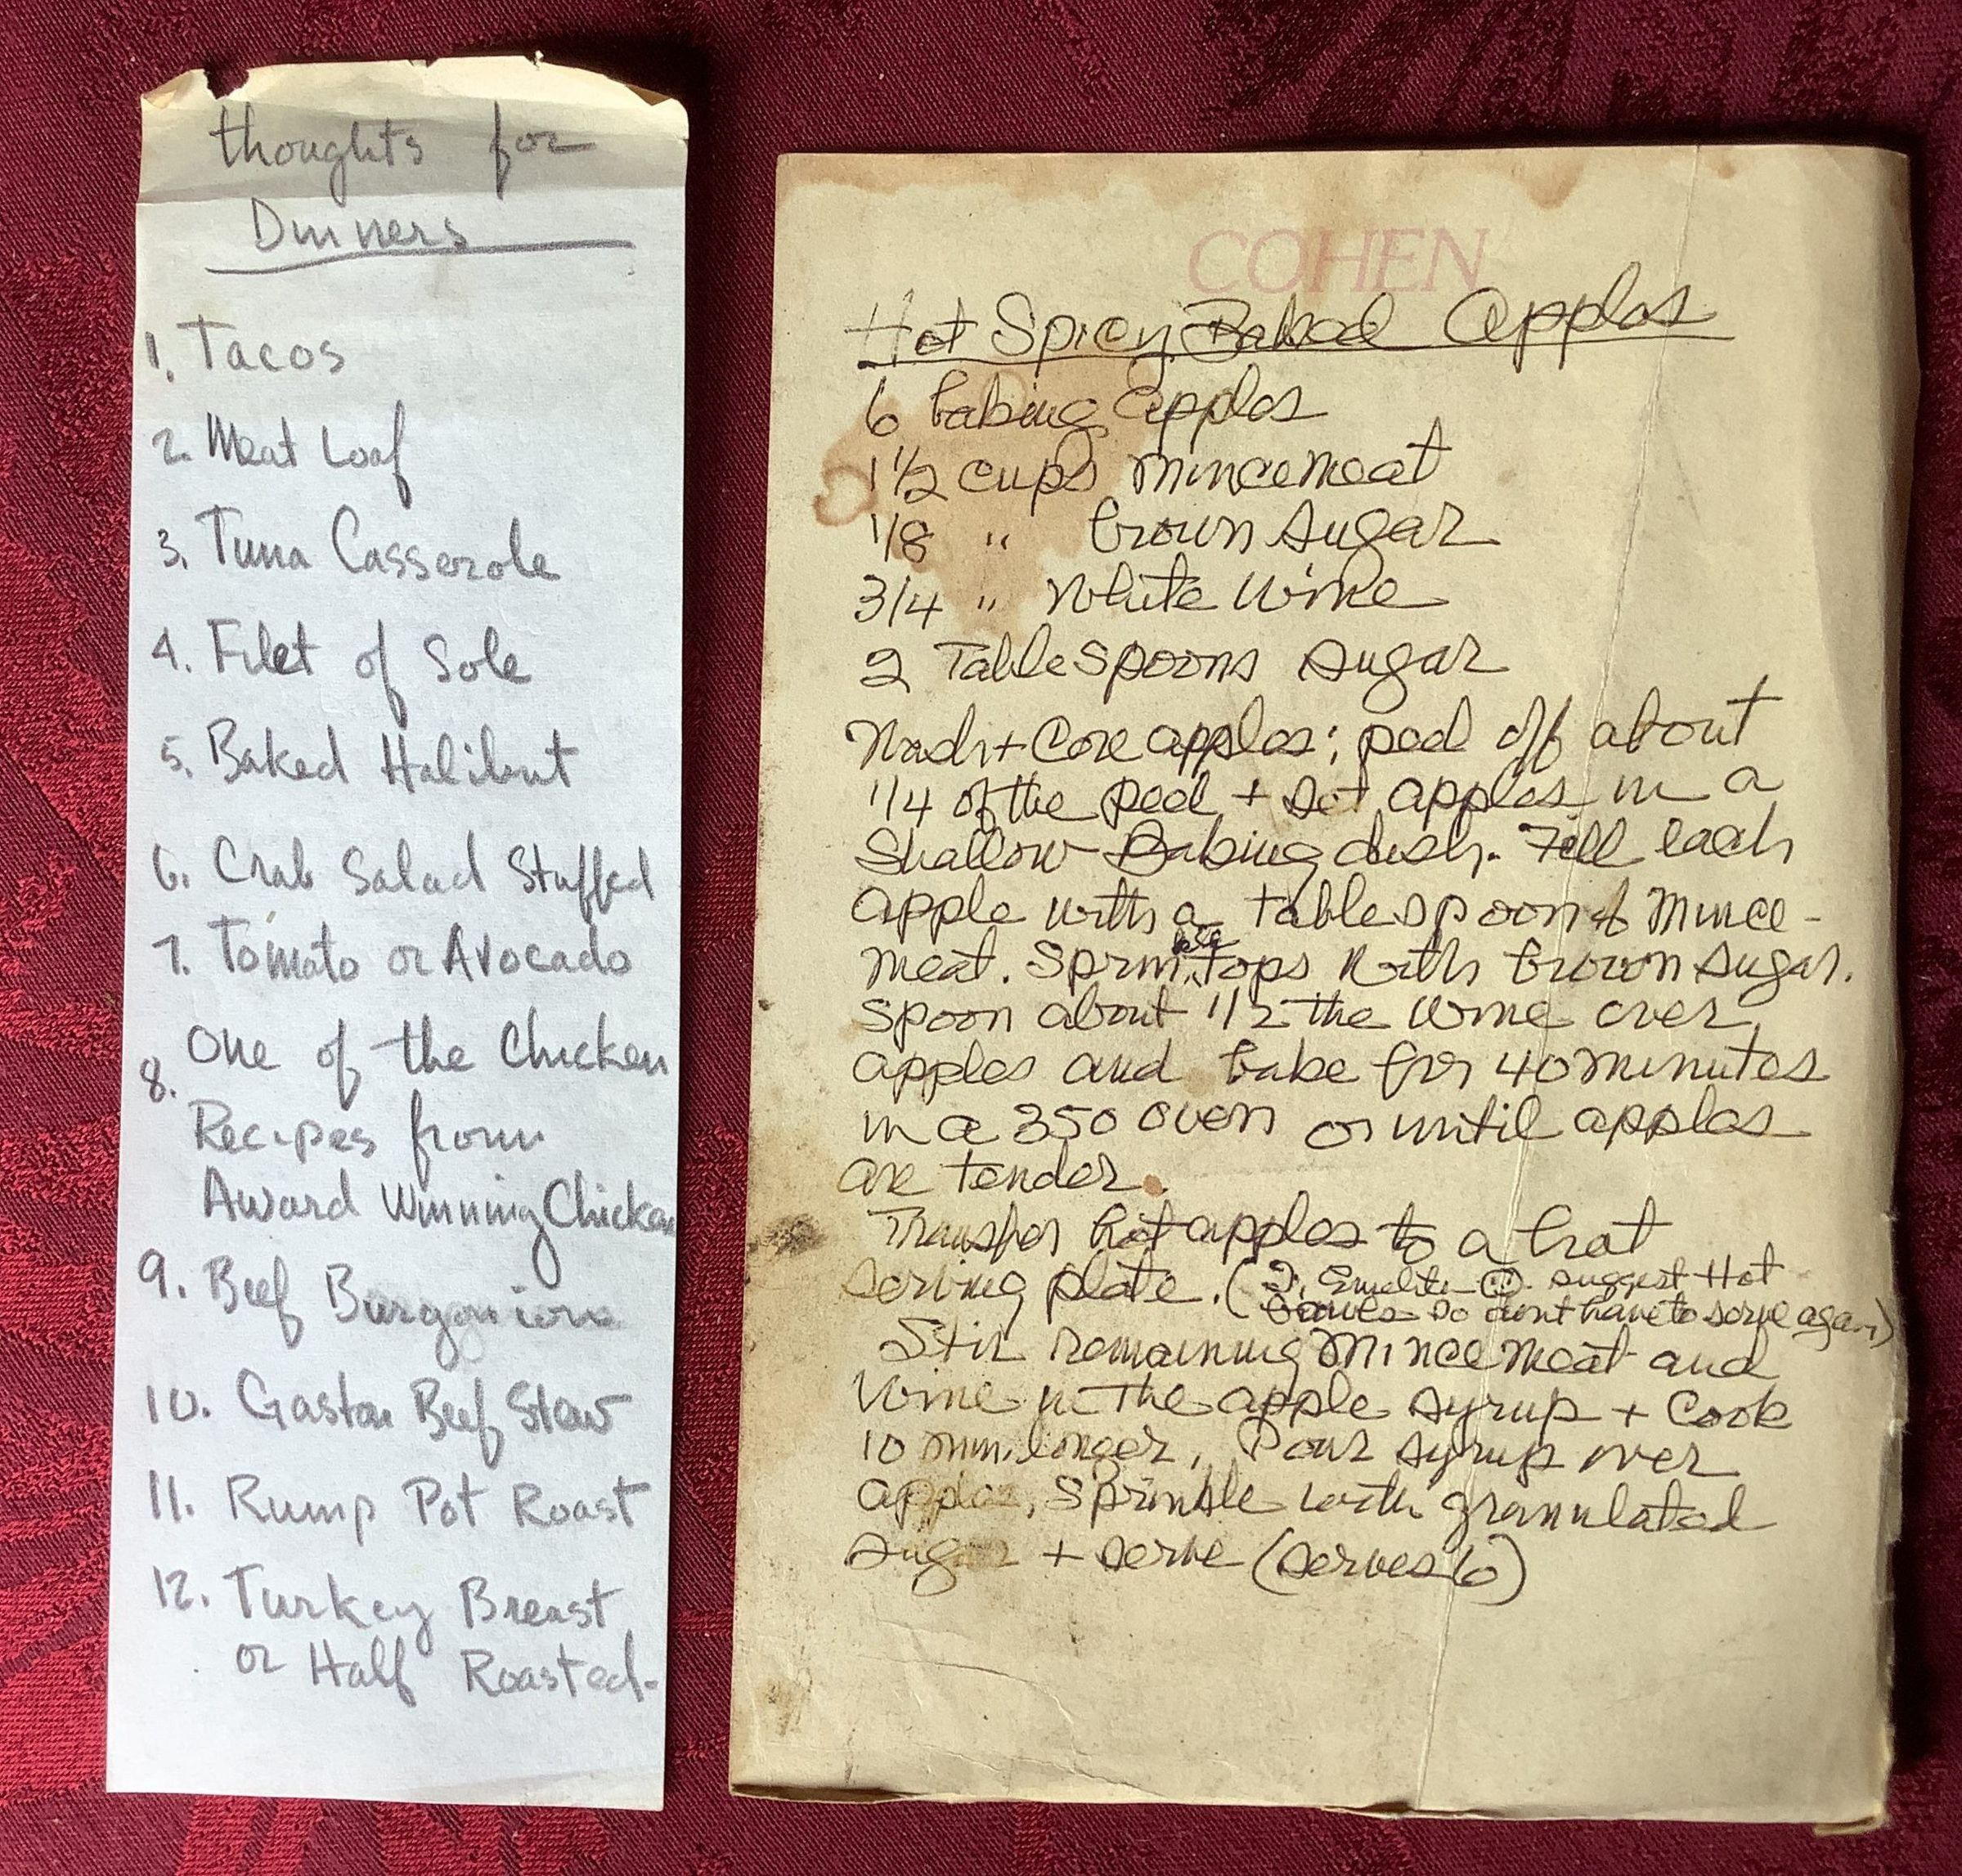 thoughts for
Dinners
1. Tacos
2. Meat Loaf
3. Tuna Casserole
4. Filet of Sole
5. Baked Halibut
6. Crab Salad Stuffed
7. Tomato or Avocado
8. One of the Chicken
Recipes from
Award Winning Chicken
9. Beef Burgonione
10. Gaston Beef Stew
11. Rump Pot Roast
12. Turkey Breast
or Half Roasted.
COHEN
Hot Spicy Baked Apples
6 baking apples
1 1/2 cups mincemeat
1/8 " brown sugar
3/4 " White Wine
2 TableSpoons sugar
Wash + Core apples; peel off about
1/4 of the peel + set apples in a
Shallow Baking dish. Fill each
apple with a tablespoon of Mince-
meat. Sprinkle tops with brown sugar.
Spoon about 1/2 the wine over
apples and bake for 40 minutes
in a 350 oven or until apples
are tender.
Transfer hot apples to a heat
serving plate. ( suggest Hot
so dont have to serve again)
Stir remaining Mincemeat and
Wine in the apple syrup + Cook
10 min. longer. Pour syrup over
apples, Sprinkle with granulated
sugar + serve (serves 6)